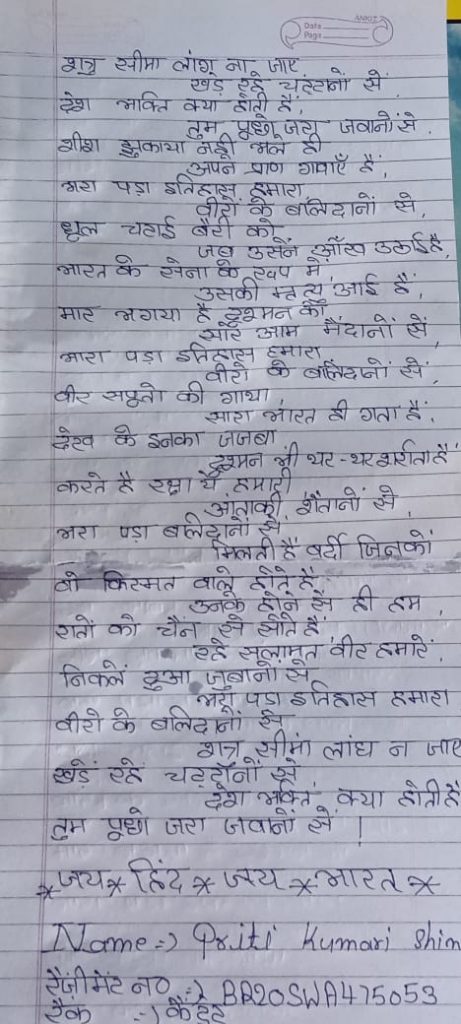 Date
Page
शत्रु सीमा लांग् ना जाए
खड़े रहे चट्टानों से,
देश भक्ति क्या होती हैं,
तुम पूछो जरा जवानों से,
शीश झुकाया नही भले ही
अपने प्राण गवाएँ हैं,
भरा पड़ा इतिहास हमारा
वीरों के बलिदानों से,
धूल चटाई बैरी को
जब उसने आँख उठाई है,
भारत के सेना के रूप में,
उसकी मृत्यु आई हैं,
मार भगाया है दुश्मन को
सारे आम मैदानों से,
भारा पड़ा इतिहास हमारा
वीरो के बलिदानों से,
वीर सपूतो की गाथा,
सारा भारत ही गता हैं,
देख के इनका जजबा
दुश्मन भी थर-थरथर्राता हैं
करते है रक्षा ये हमारी
आंताकी शैतानों से,
भरा पड़ा बलिदानों से
मिलती हैं वर्दी जिनकों
वो किस्मत वाले होते हैं
उनके होने से ही हम,
रातों को चैन से सोते हैं,
रहे सलामत वीर हमारे,
निकलें दुआ जुबानो से
भरा पड़ा इतिहास हमारा
वीरो के बलिदानों से
शत्रु सीमां लांघ न जाए
खड़े रहे चट्टानों से
देश भक्ति क्या होती है
तुम पूछो जरा जवानों से |
*जय* हिंद * जय * भारत *
Name => Priti Kumari Shim
रैजीमेंट न० => BR20SWA475053
रैंक => कैडेट